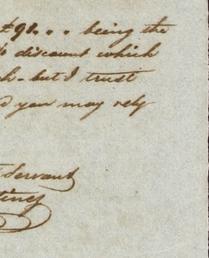 $90. . . being the
discount which
but I trust
you may rely
Servant